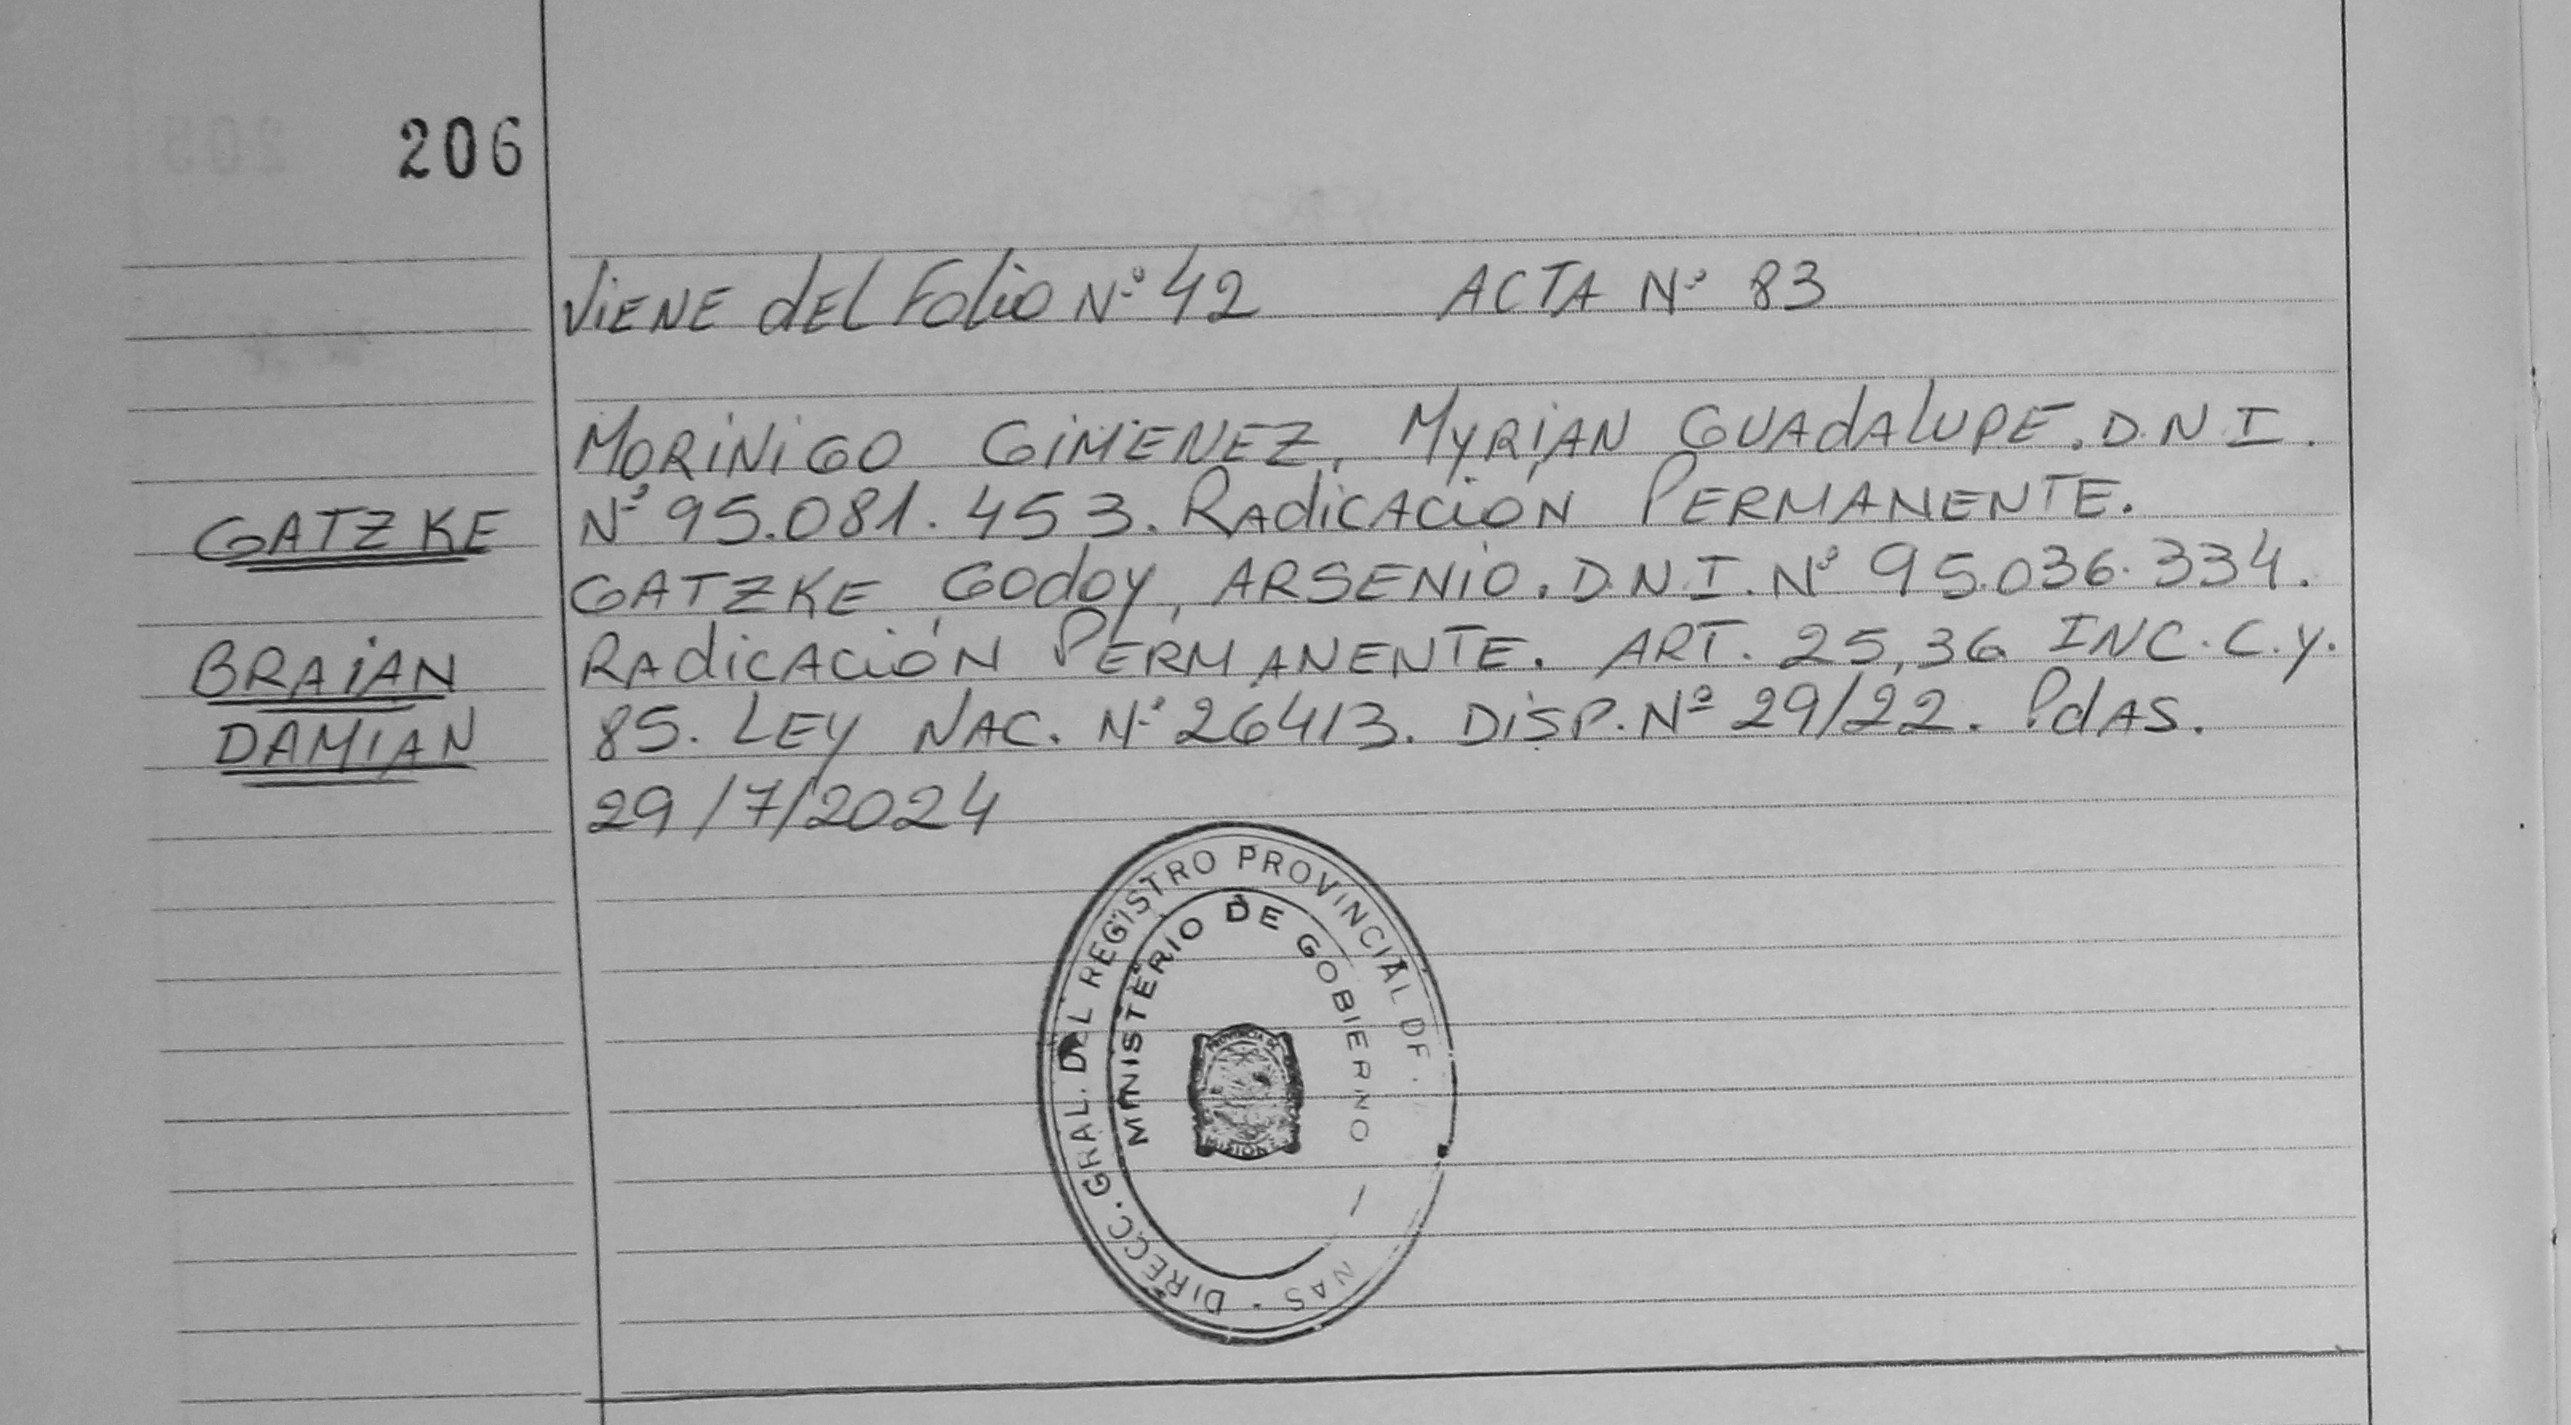 206
VIENE dEL FOLIO Nº 42 ACTA Nº 83
MORINIGO GIMENEZ, MYRIAN GUAdALUPE. D.N.I.
GATZKE
Nº 95.081.453. RAdICACIÓN PERMANENTE.
GATZKE GOdOY, ARSENIO. D.N.I. Nº 95.036.334.
BRAIAN
RAdICACIÓN PERMANENTE. ART. 25, 36 INC. C. Y.
DAMIAN
85. LEY NAC. Nº 26413. DISP. Nº 29/22. PdAS.
29/7/2024
DIRECC. GRAL. DEL REGISTRO PROVINCIAL DE
NAS
MINISTERIO DE GOBIERNO
PROVINCIA DE
MISIONES